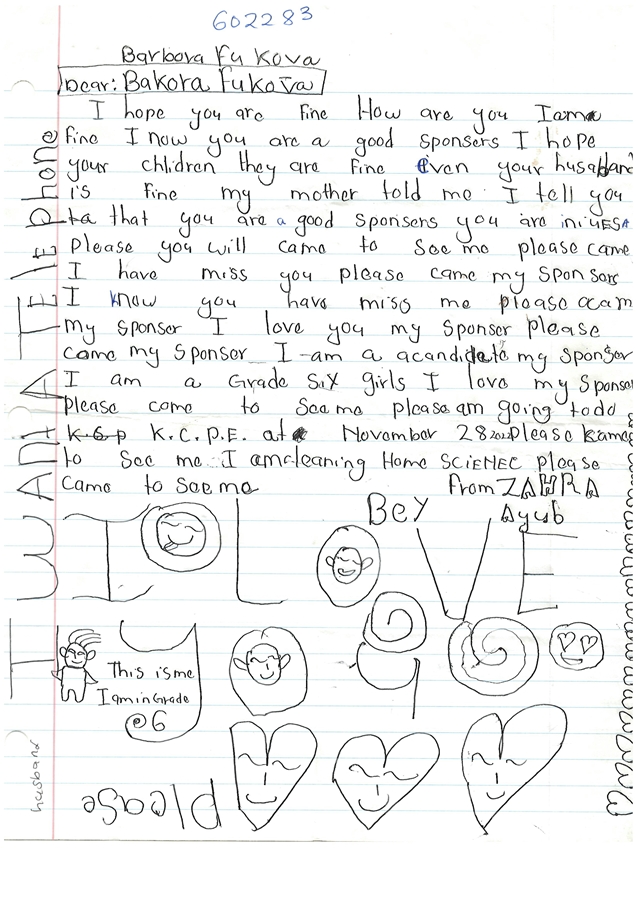 602283
Barbora Fu Kova
Dear: Bakora Fukova
I hope you are fine How are you I am
fine I now you are a good sponsers I hope
your chldren they are fine Even your husaband
is fine my mother told me I tell you
ta that you are a good sponsers you are in in UESA
Please you will came to see me please came
I have miss you please came my sponsors
I know you have miss me please acam
my sponser I love you my sponser please
came my sponser I am a acandidate my sponser
I am a Grade Six girls I love my sponser
Please come to see me please am going to do
K.C.P.E. at November 28 please kame
to see me I am cleaning Home SCIENEC please
came to see me From ZAHRA
Bey Ayub
I LOVE
you
This is me
I am in Grade
@6
please
I WANT A TELEphone
husband